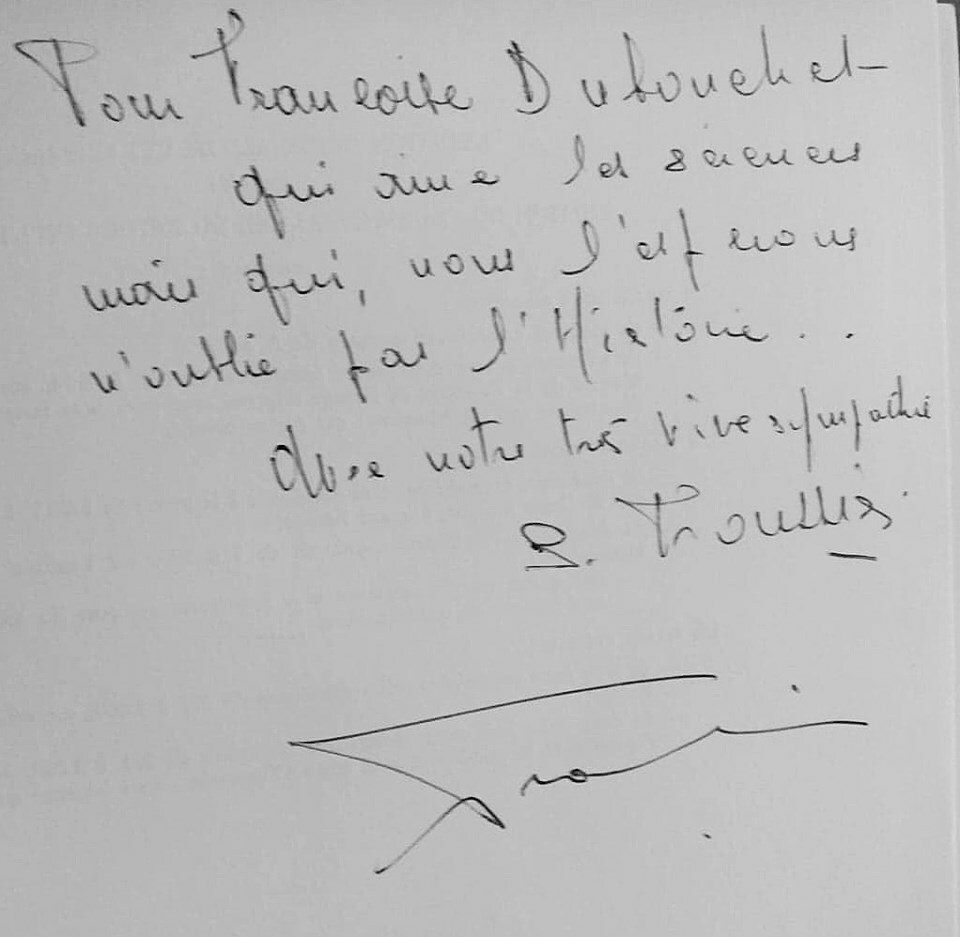 Pour Françoise Dubouchet
qui aime les sciences
mais qui, nous l'espérons
n'oublie pas l'Histoire...
Avec notre très vive sympathie